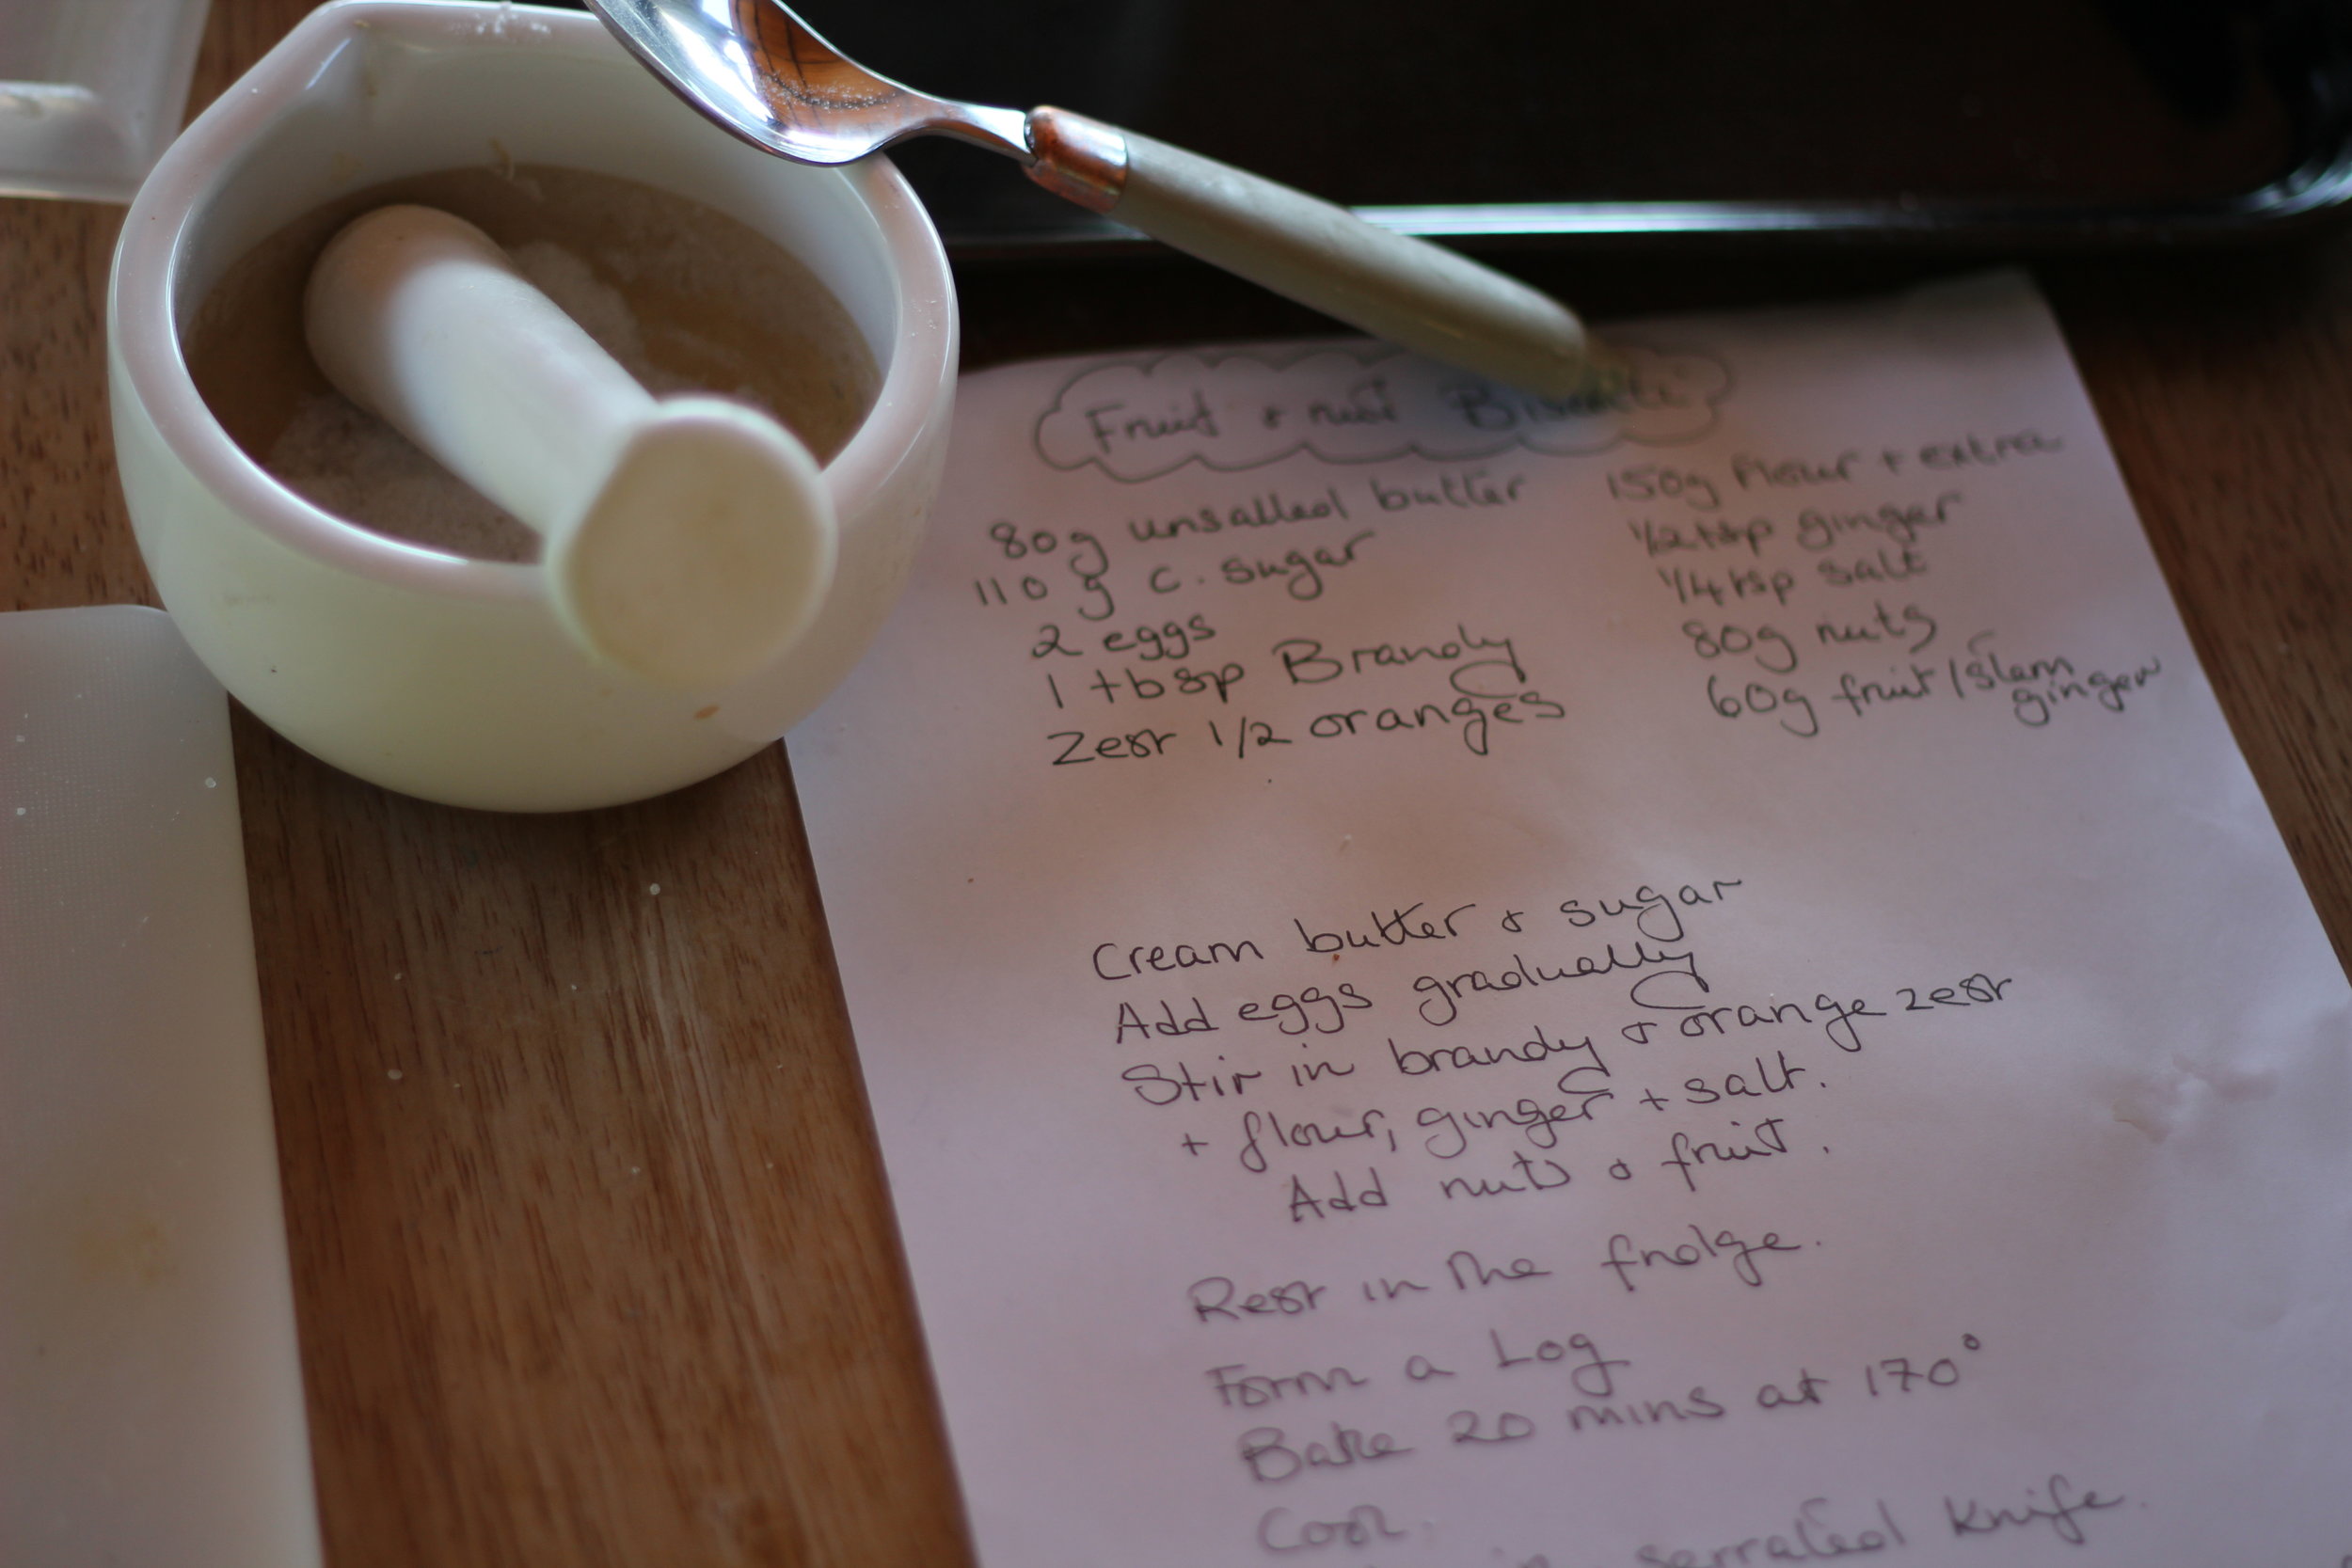 Fruit & nut
80g unsalted butter
110g c. sugar
2 eggs
1 tbsp Brandy
Zest 1/2 oranges
150g flour + extra
1/2 tsp ginger
1/4 tsp salt
80g nuts
60g fruit / stem
ginger
Cream butter & sugar
Add eggs gradually
Stir in brandy & orange zest
+ flour, ginger + salt.
Add nuts & fruit.
Rest in the fridge.
Form a Log
Bake 20 mins at 170°
Cool.
serrated knife.